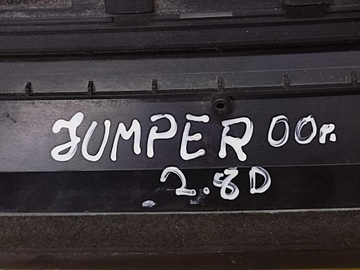 JUMPER 00r.
2.8D